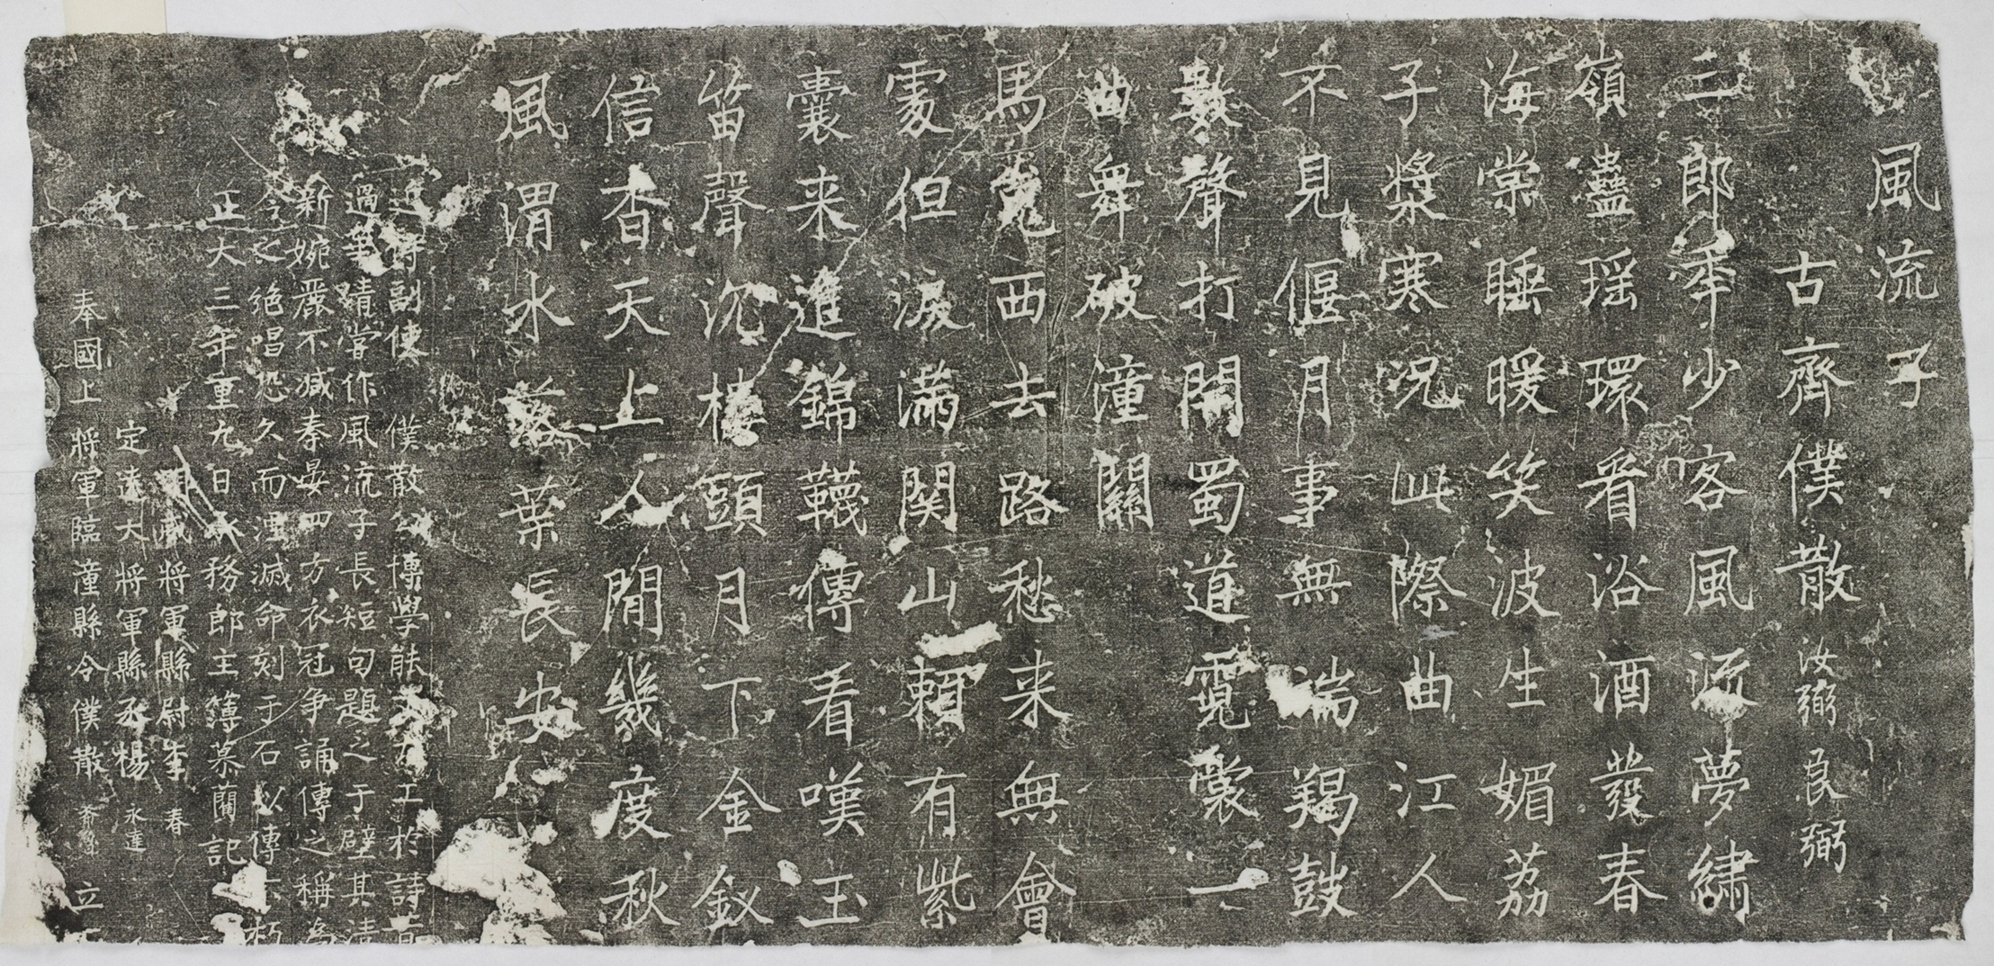 風流子
古齊僕散汝弼良弼
三郎年少客風流夢繡
嶺蠱瑶環看浴酒發春
海棠睡暖笑波生媚荔
子漿寒況此際曲江人
不見偃月事無端羯鼓
數聲打開蜀道霓裳一
曲舞破潼關
馬嵬西去路愁来無會
處但淚滿関山賴有紫
囊来進錦韈傳看嘆玉
笛聲沉樓頭月下金釵
信杳天上人間幾度秋
風渭水落葉長安
近侍副使僕散公博學能文尤工於詩
過華清嘗作風流子長短句題之于壁其清
新婉麗不減秦晏四方衣冠争誦傳之稱為
今之絶唱恐久而湮滅命刻于石以傳不朽
正大三年重九日承務郎主簿慕蘭記
明威將軍縣尉李春
定遠大將軍縣丞楊永達
奉國上將軍臨潼縣令僕散 立